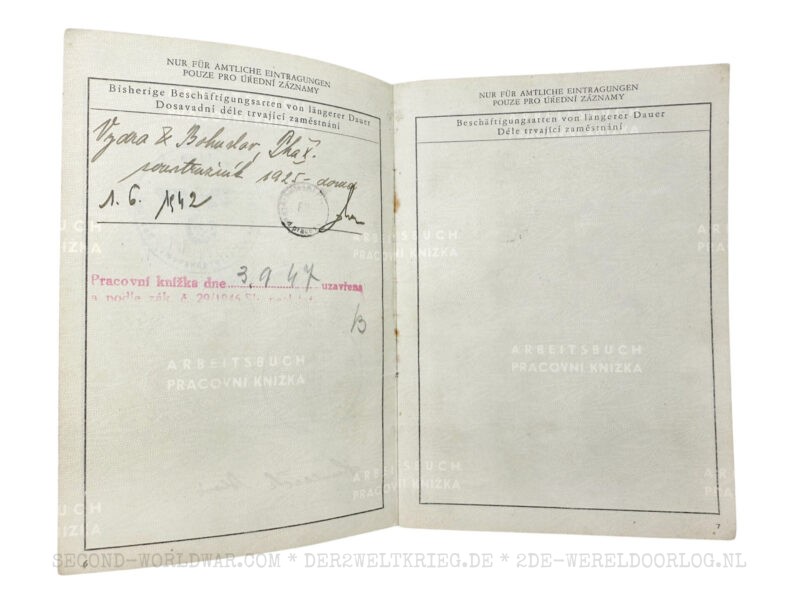 NUR FÜR AMTLICHE EINTRAGUNGEN
POUZE PRO ÚŘEDNÍ ZÁZNAMY
Bisherige Beschäftigungsarten von längerer Dauer
Dosavadní déle trvající zaměstnání
Vydra & Bohuslav, Praha X.
soustružník 1925 – dosud
1. 6. 1942
Pracovní knížka dne 3. 9. 47 uzavřena
a podle zák. č. 29/1946 Sb.
ARBEITSBUCH
PRACOVNÍ KNÍŽKA
6
NUR FÜR AMTLICHE EINTRAGUNGEN
POUZE PRO ÚŘEDNÍ ZÁZNAMY
Beschäftigungsarten von längerer Dauer
Déle trvající zaměstnání
ARBEITSBUCH
PRACOVNÍ KNÍŽKA
ARBEITSBUCH
PRACOVNÍ KNÍŽKA
ARBEITSBUCH
PRACOVNÍ KNÍŽKA
7
SECOND-WORLDWAR.COM * DER2WELTKRIEG.DE * 2DE-WERELDOORLOG.NL